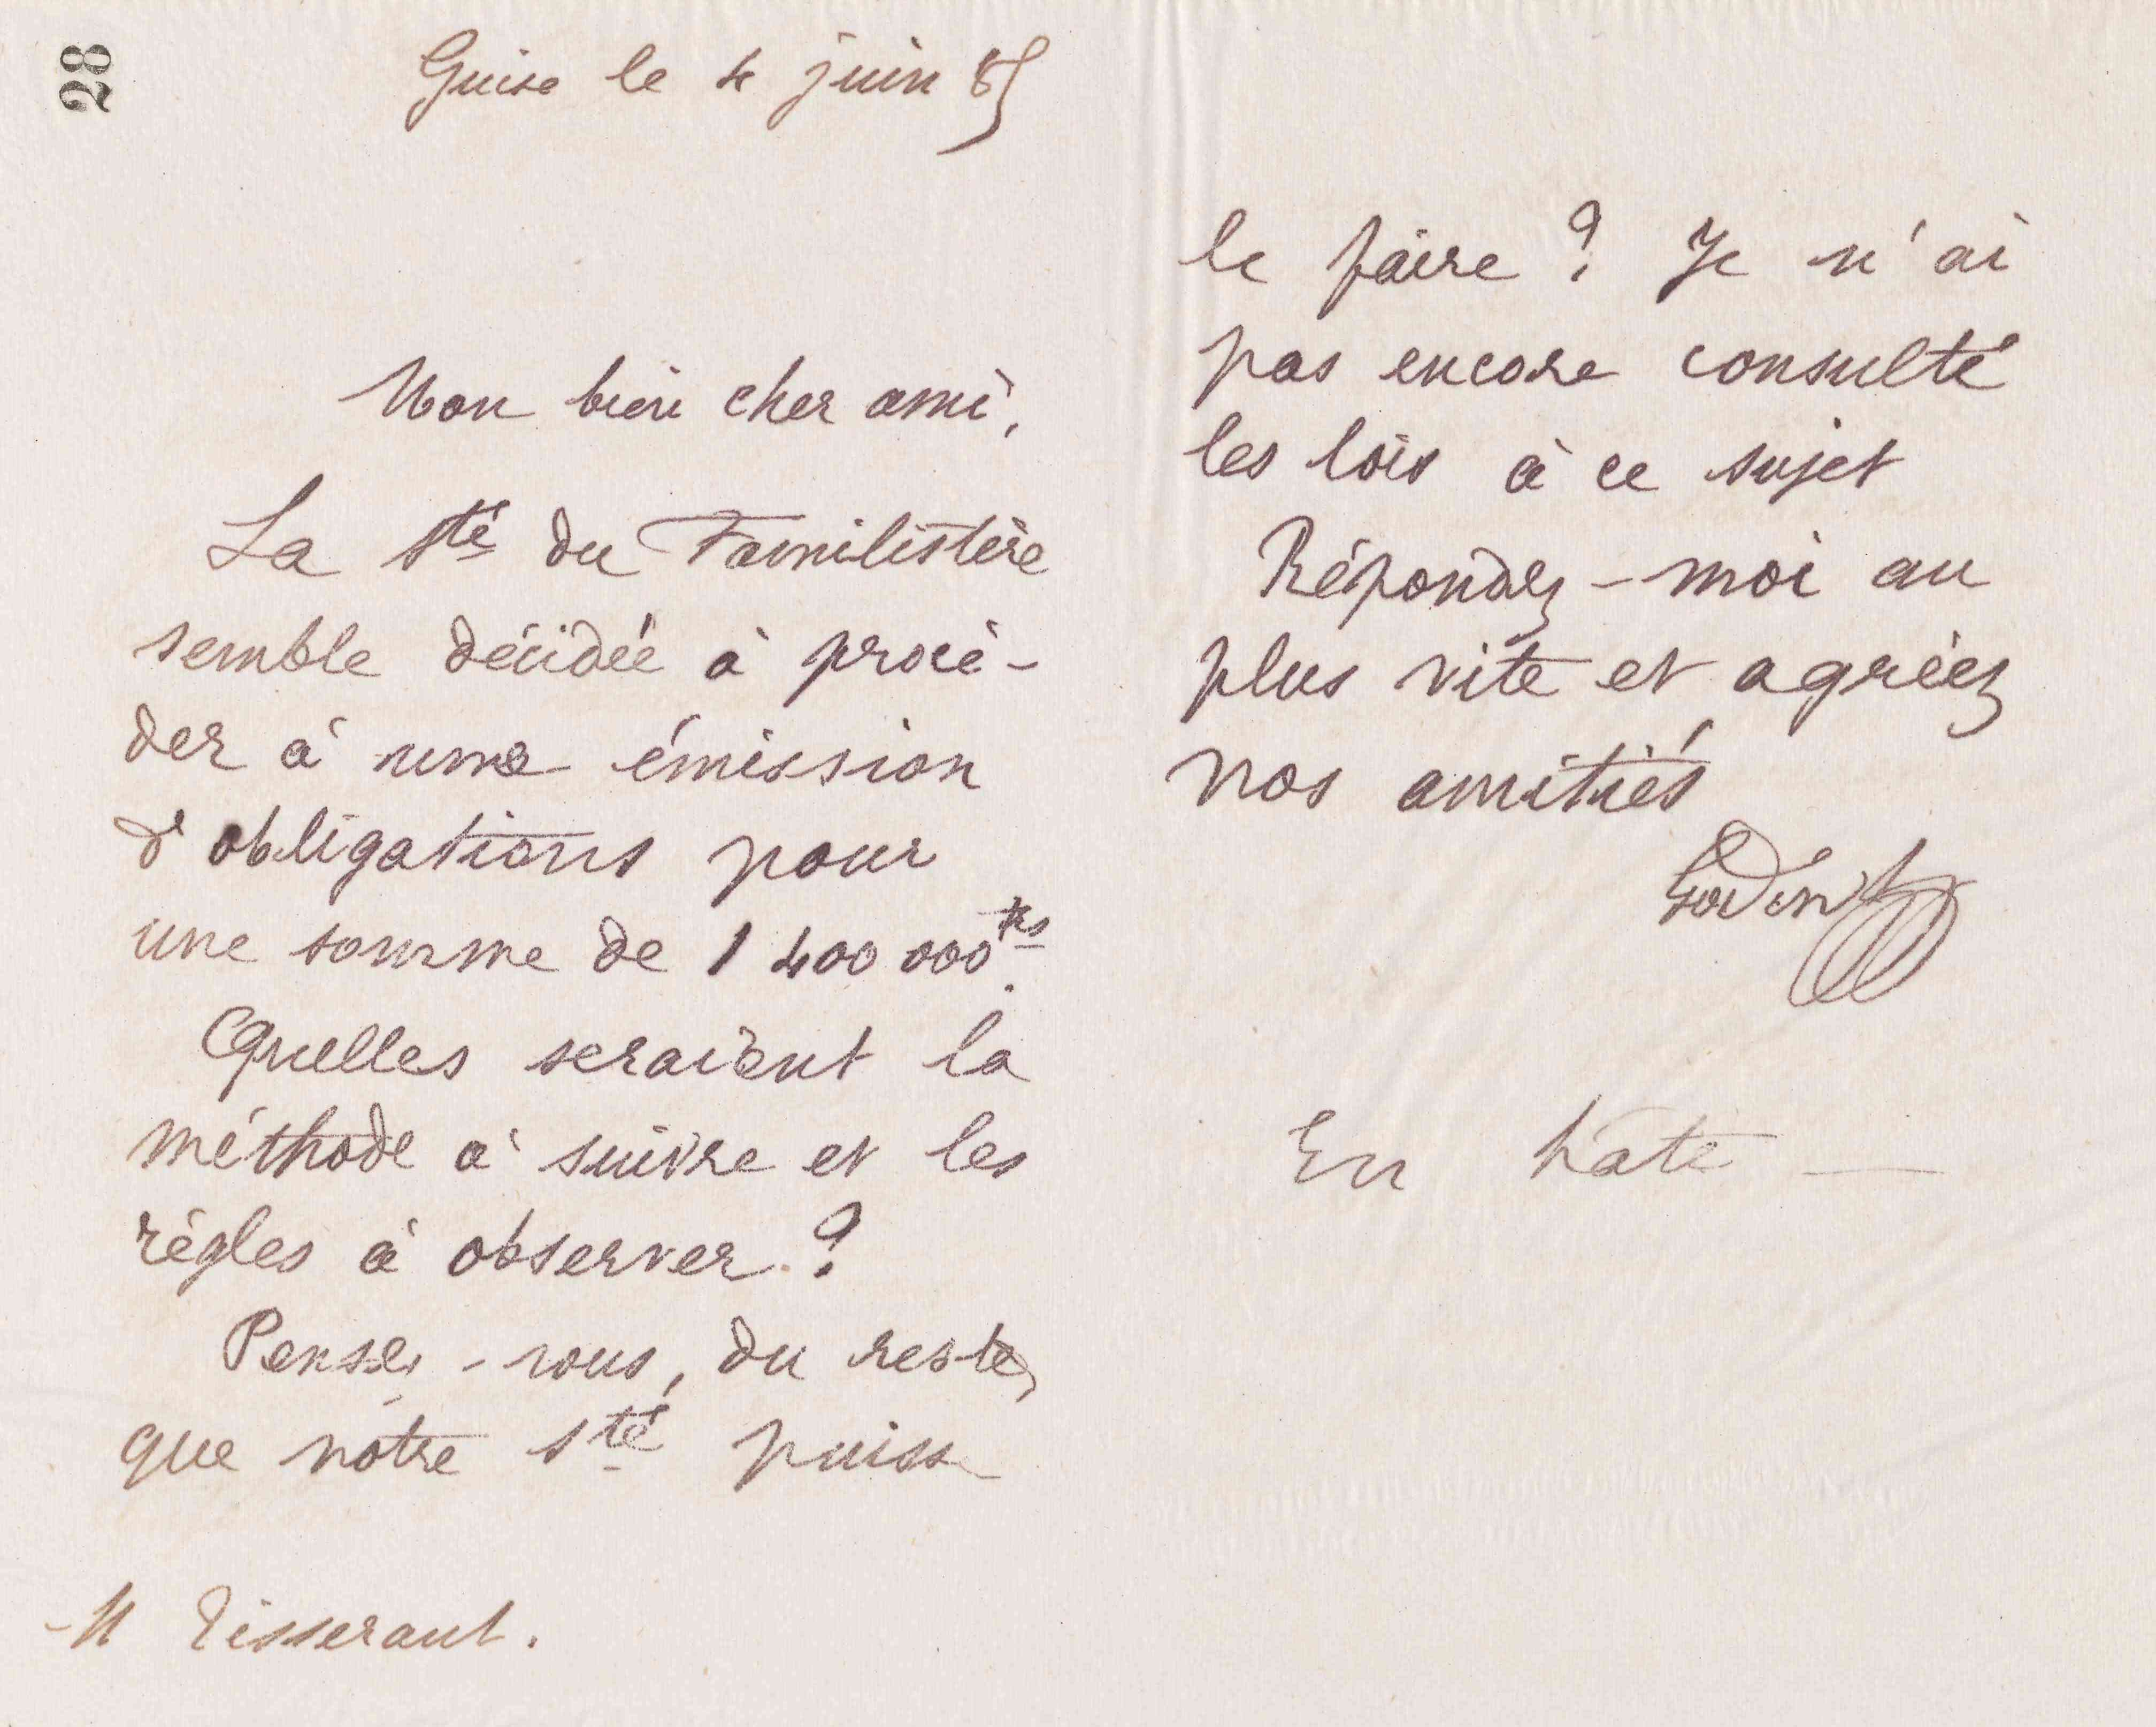 28
Guise le 4 juin 85
Mon bien cher ami,
La Sté du Familistère
semble décidée à procé-
der à une émission
d'obligations pour
une somme de 1 400 000 frs.
Quelles seraient la
méthode à suivre et les
règles à observer ?
Pensez-vous, du reste,
que notre Sté puisse
M Tisserant.
le faire ? Je n'ai
pas encore consulté
les lois à ce sujet
Répondez-moi au
plus vite et agréez
nos amitiés
Godin
En hâte —